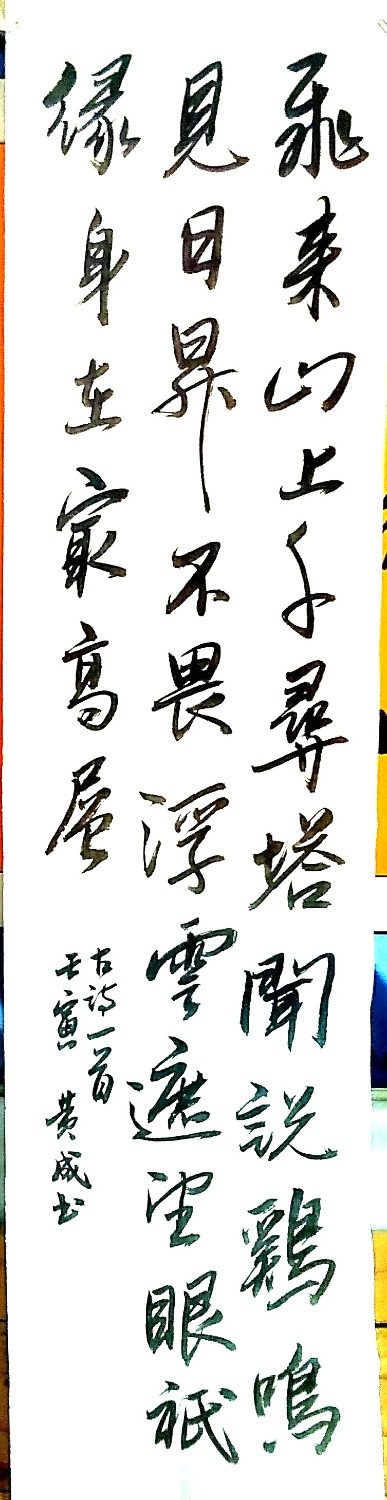 飛来山上千尋塔聞説鷄鳴
見日昇不畏浮雲遮望眼祇
縁身在寂高層
古詩一首
壬寅 黄成书